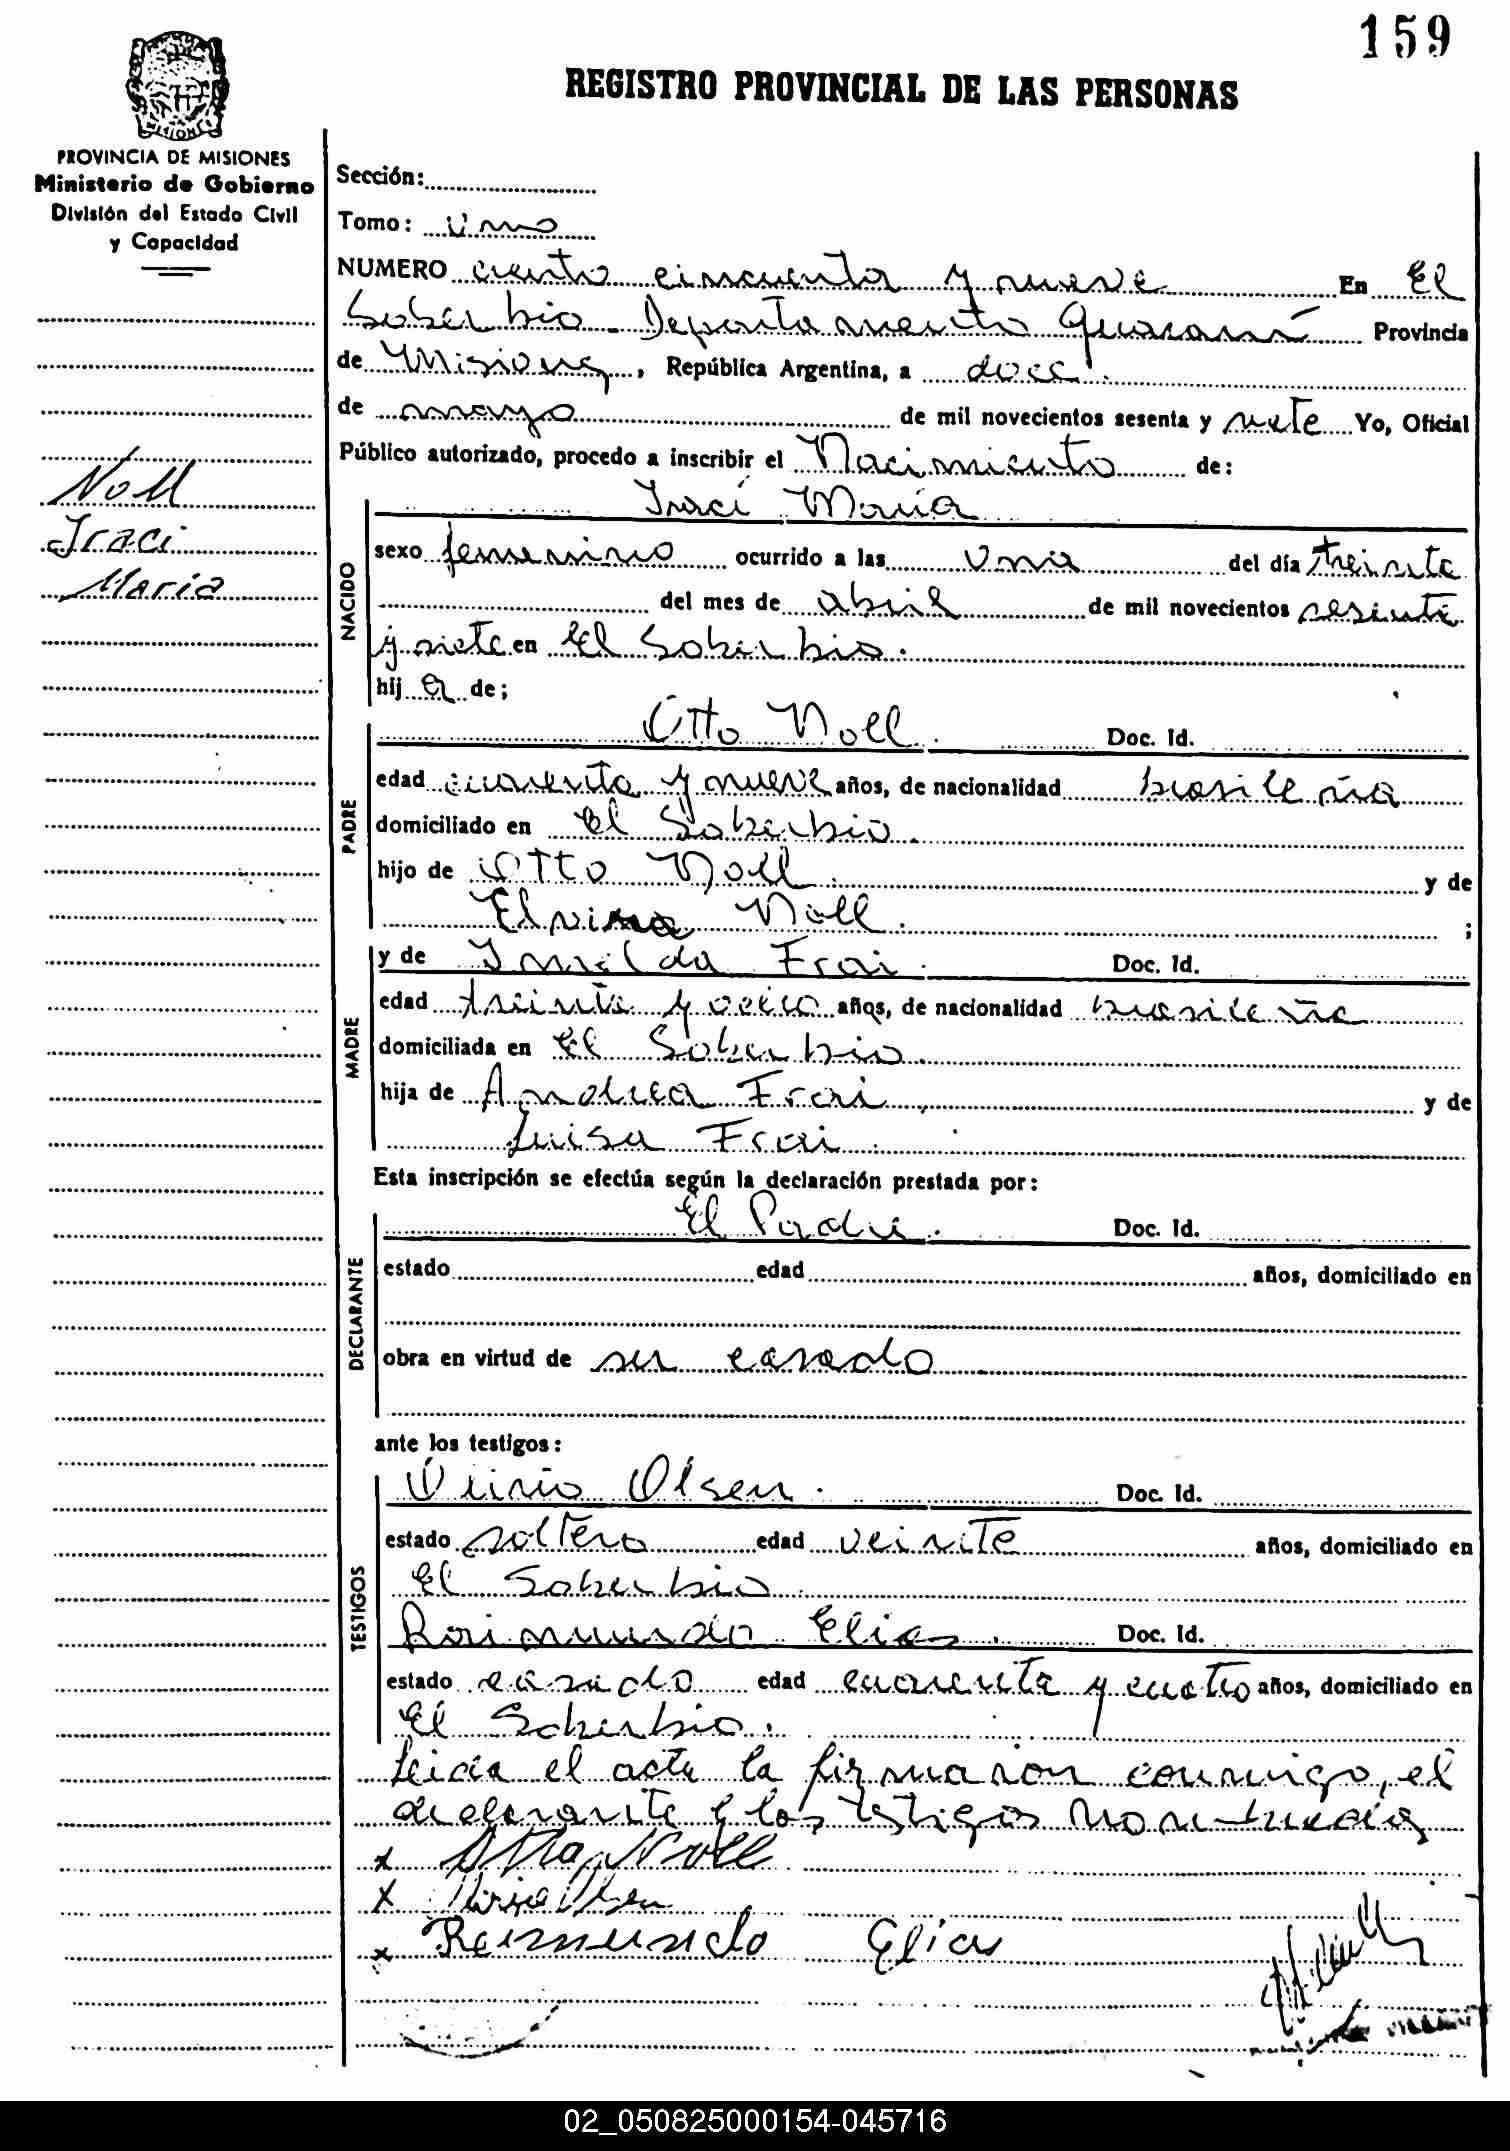 159
REGISTRO PROVINCIAL DE LAS PERSONAS
MISIONES
PROVINCIA DE MISIONES
Ministerio de Gobierno
División del Estado Civil
y Capacidad
Noll
Iraci
Maria
Sección:
Tomo: uno
NUMERO ciento cincuenta y nueve En El
Soberbio Departamento Guaraní Provincia
de Misiones, República Argentina, a doce
de mayo de mil novecientos sesenta y siete Yo, Oficial
Público autorizado, procedo a inscribir el Nacimiento de:
Iraci María
NACIDO
sexo femenino ocurrido a las una del día treinta
del mes de abril de mil novecientos sesenta
y siete en El Soberbio.
hij a de;
PADRE
Otto Noll. Doc. Id.
edad cuarenta y nueve años, de nacionalidad brasileña
domiciliado en El Soberbio.
hijo de Otto Noll. y de
Elvira Noll. ;
MADRE
y de Imelda Frai. Doc. Id.
edad treinta y ocho años, de nacionalidad brasileña
domiciliada en El Soberbio.
hija de Andrea Frai y de
Luisa Frai.
Esta inscripción se efectúa según la declaración prestada por:
DECLARANTE
El Padre. Doc. Id.
estado edad años, domiciliado en
obra en virtud de ser casado
ante los testigos:
TESTIGOS
Olsen. Doc. Id.
estado soltero edad veinte años, domiciliado en
El Soberbio
Raimundo Elias. Doc. Id.
estado casado edad cuarenta y cuatro años, domiciliado en
El Soberbio.
Leida el acta la firmaron conmigo, el
declarante y los testigos
x Otto Noll
x Olsen
x Reimundo Elias
02_050825000154-045716